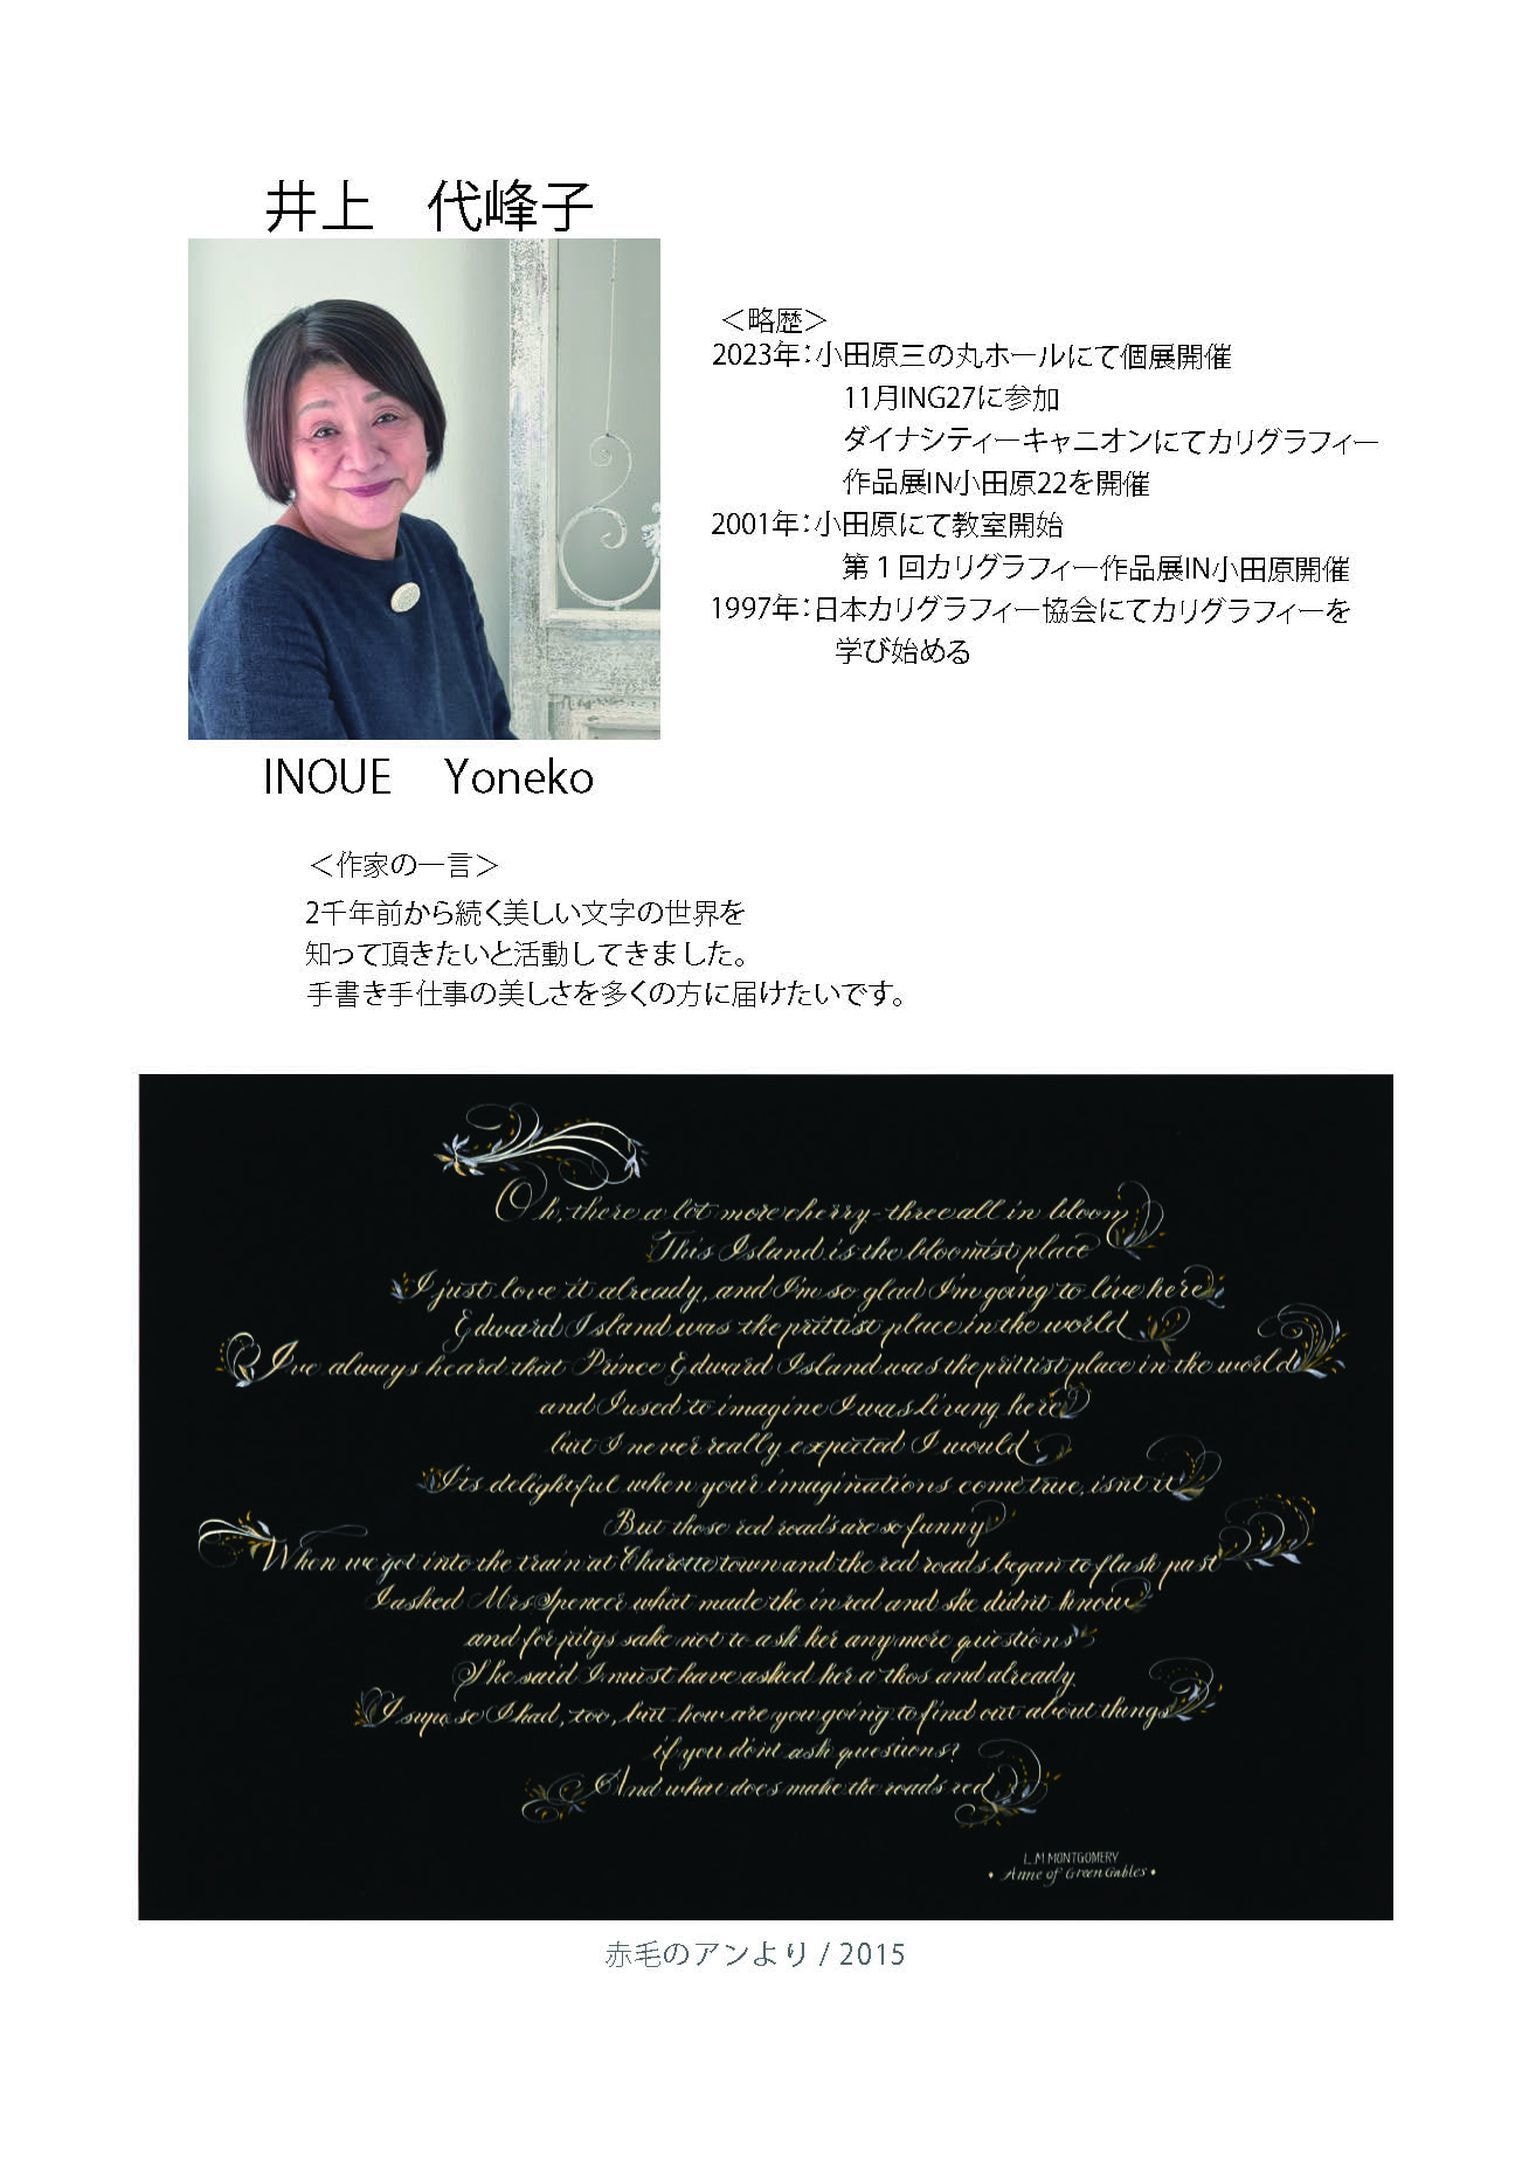 井上　代峰子
＜略歴＞
2023年：小田原三の丸ホールにて個展開催
11月ING27に参加
ダイナシティーキャニオンにてカリグラフィー
作品展IN小田原22を開催
2001年：小田原にて教室開始
第１回カリグラフィー作品展IN小田原開催
1997年：日本カリグラフィー協会にてカリグラフィーを
学び始める
INOUE　Yoneko
＜作家の一言＞
2千年前から続く美しい文字の世界を
知って頂きたいと活動してきました。
手書き手仕事の美しさを多くの方に届けたいです。
Oh, there a lot more cherry-three all in bloom
This Island is the bloomist place
I just love it already, and I'm so glad I'm going to live here
Edward Island was the prittist place in the world
I've always heard that Prince Edward Island was the prittist place in the world
and I used to imagine I was living here
but I never really expected I would
It's delightful when your imaginations come true, isn't it
But those red roads are so funny
When we got into the train at Charottetown and the red roads began to flash past
I asked Mrs Spencer what made the in red and she didn't know
and for pity's sake not to ask her any more questions
She said I must have asked her a thos and already
I supose I had, too, but how are you going to find out about things
if you don't ask questions?
And what does make the roads red
L.M MONTGOMERY
• Anne of Green Gables •
赤毛のアンより / 2015